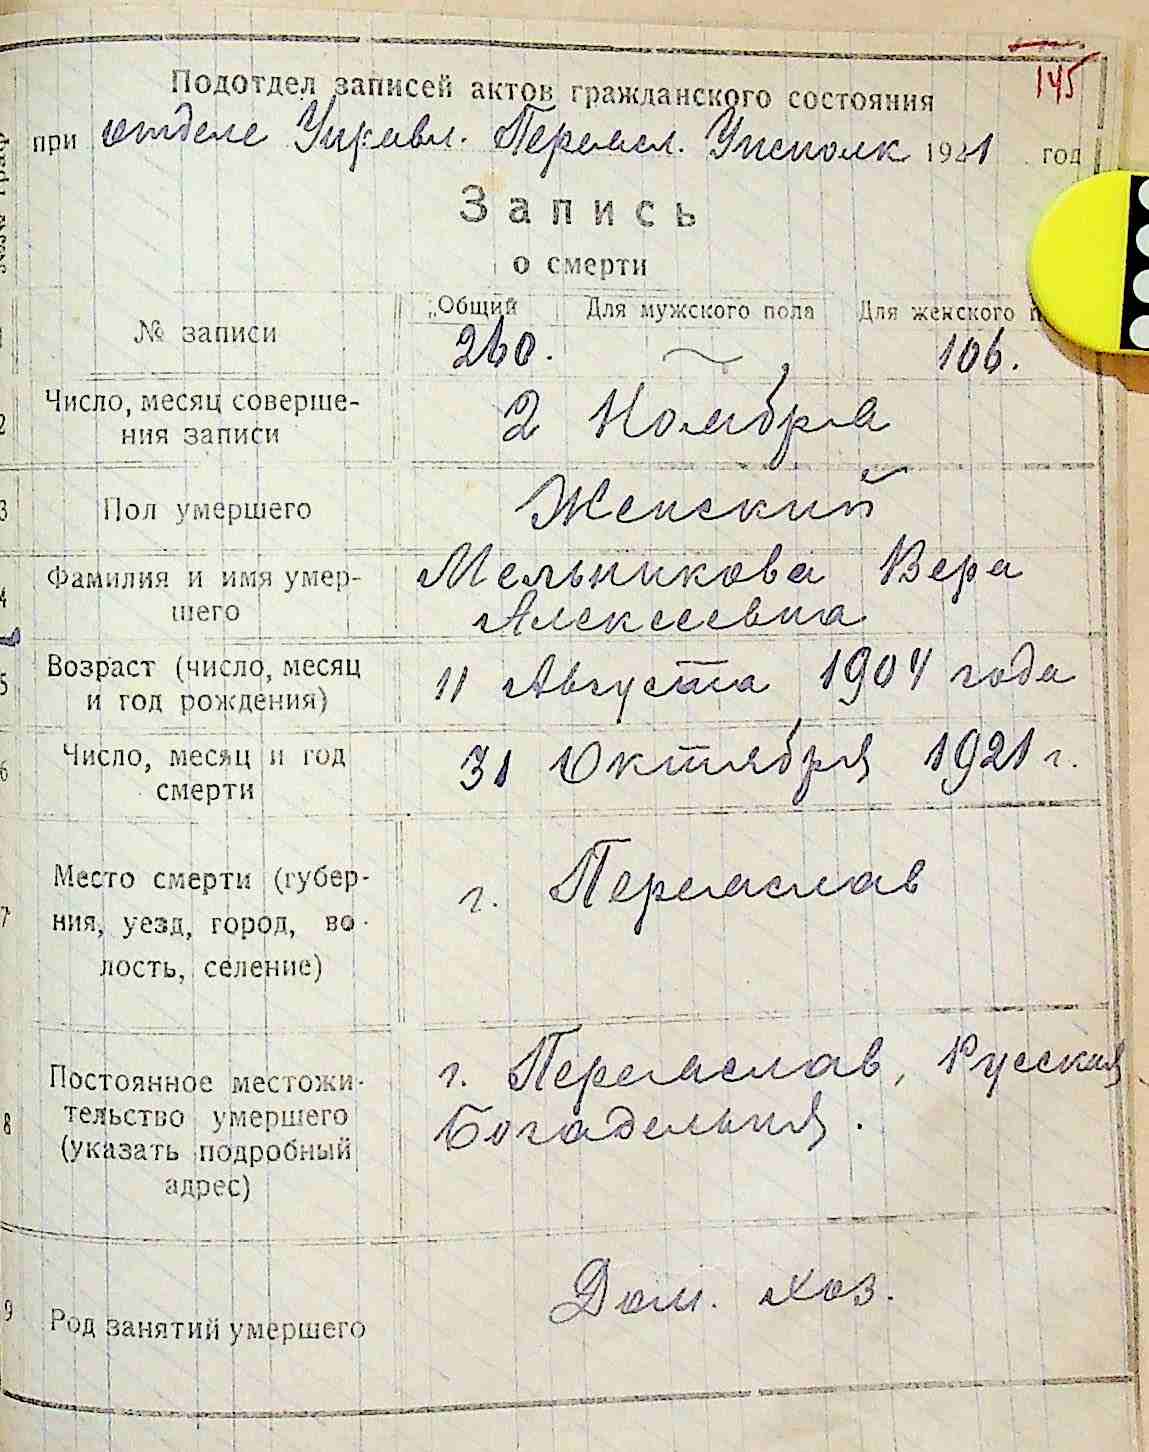 145
Подотдел записей актов гражданского состояния
при отделе Управл. Переясл. Уисполк 1921 год
Запись
о смерти
Общий Для мужского пола Для женского п
1 № записи 260. 106.
2 Число, месяц соверше-
ния записи 2 Ноября
3 Пол умершего Женский
4 Фамилия и имя умер- Мельникова Вера
шего Алексеевна
5 Возраст (число, месяц
и год рождения) 11 Августа 1904 года
6 Число, месяц и год
смерти 31 Октября 1921 г.
Место смерти (губер-
7 ния, уезд, город, во- г. Переяслав
лость, селение)
Постоянное местожи- г. Переяслав, Русская
8 тельство умершего Богадельня.
(указать подробный
адрес)
9 Род занятий умершего Дом. хоз.